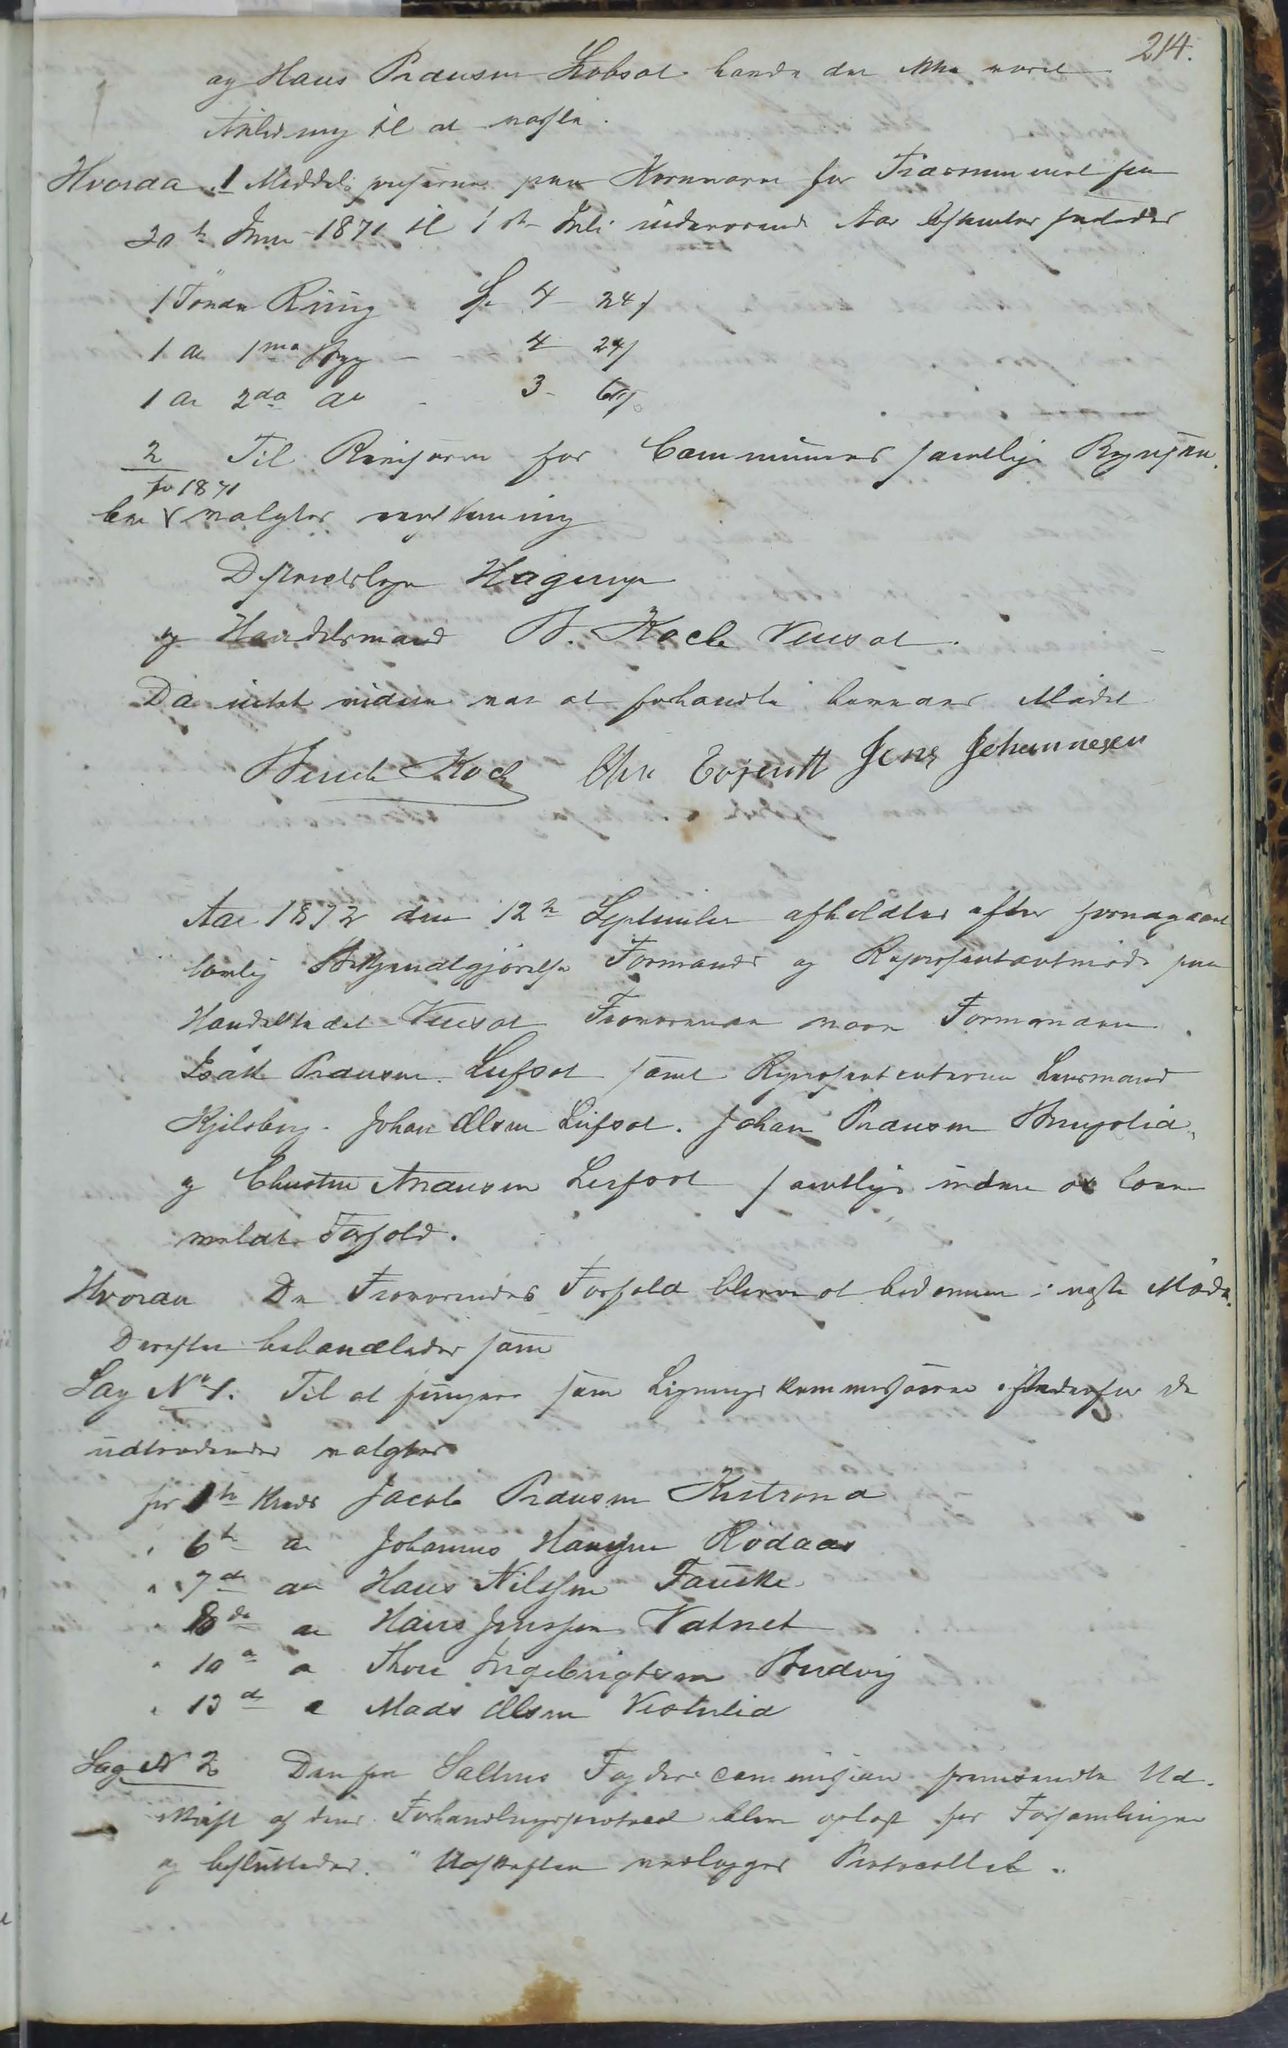 214.
og Hans Pedersen Løbsøl havde der ikke været
Anledning til at varsle.
Hvorda 1 Middelpriserne paa Kornvarer for Tidsrummet fra
20de Juni 1871 til 1ste Juli indeværende Aar bestemtes saaledes
1 Tönde Rüug Sp. 4 24 s
1 do 1ma Byg - 4 24 s
1 do 2da do - 3 60 s
2 Til Revisorer for Communens samtlige Regnska-
for 1871
ber valgtes
Distriktslæge Hagerup
og Handelsmand B. Koch Venset.
Da intet videre var at forhandle hævedes Mödet
Bernt Koch Chr Evjenth Jens Johannesen
Aar 1872 den 12te September afholdtes efter forudgaaende
lovlig Bekjendtgjörelse Formands og Repræsentantmöde paa
Handelstedet Venset Fraværende vare Formanden
Isak Pedersen Leifset samt Repræsentanterne Lensmand
Kjelsberg. Johan Olsen Leifset. Johan Pedersen
og Christen Andersen Leifset samtlige uden at have
meldt Forfald.
Hvorda De Fraværendes Forfald bliver at bedömme i næste Möde.
Derefter behandledes som
Sag No 1. Til at fungere som Ligningskommissærer istedetfor de
udtrædende valgtes
for 1ste Kreds Jacob Pedersen Kistrand
" 6te do Johannes Hansen Rödaas
" 7de do Hans Nilssen Fauske
" 8de do Hans Jenssen Vatnet
" 10de do Thore Ingebrigtsen Bredvig
" 13de do Mads Olsen Vestvlid
Sag N 2 Den fra Saltens Fogderi commission fremsendte Ud-
skrift af dens Forhandlingsprotocol blev oplæst for Forsamlingen
og besluttedes. "Udskriften vedlægges Protocollet".